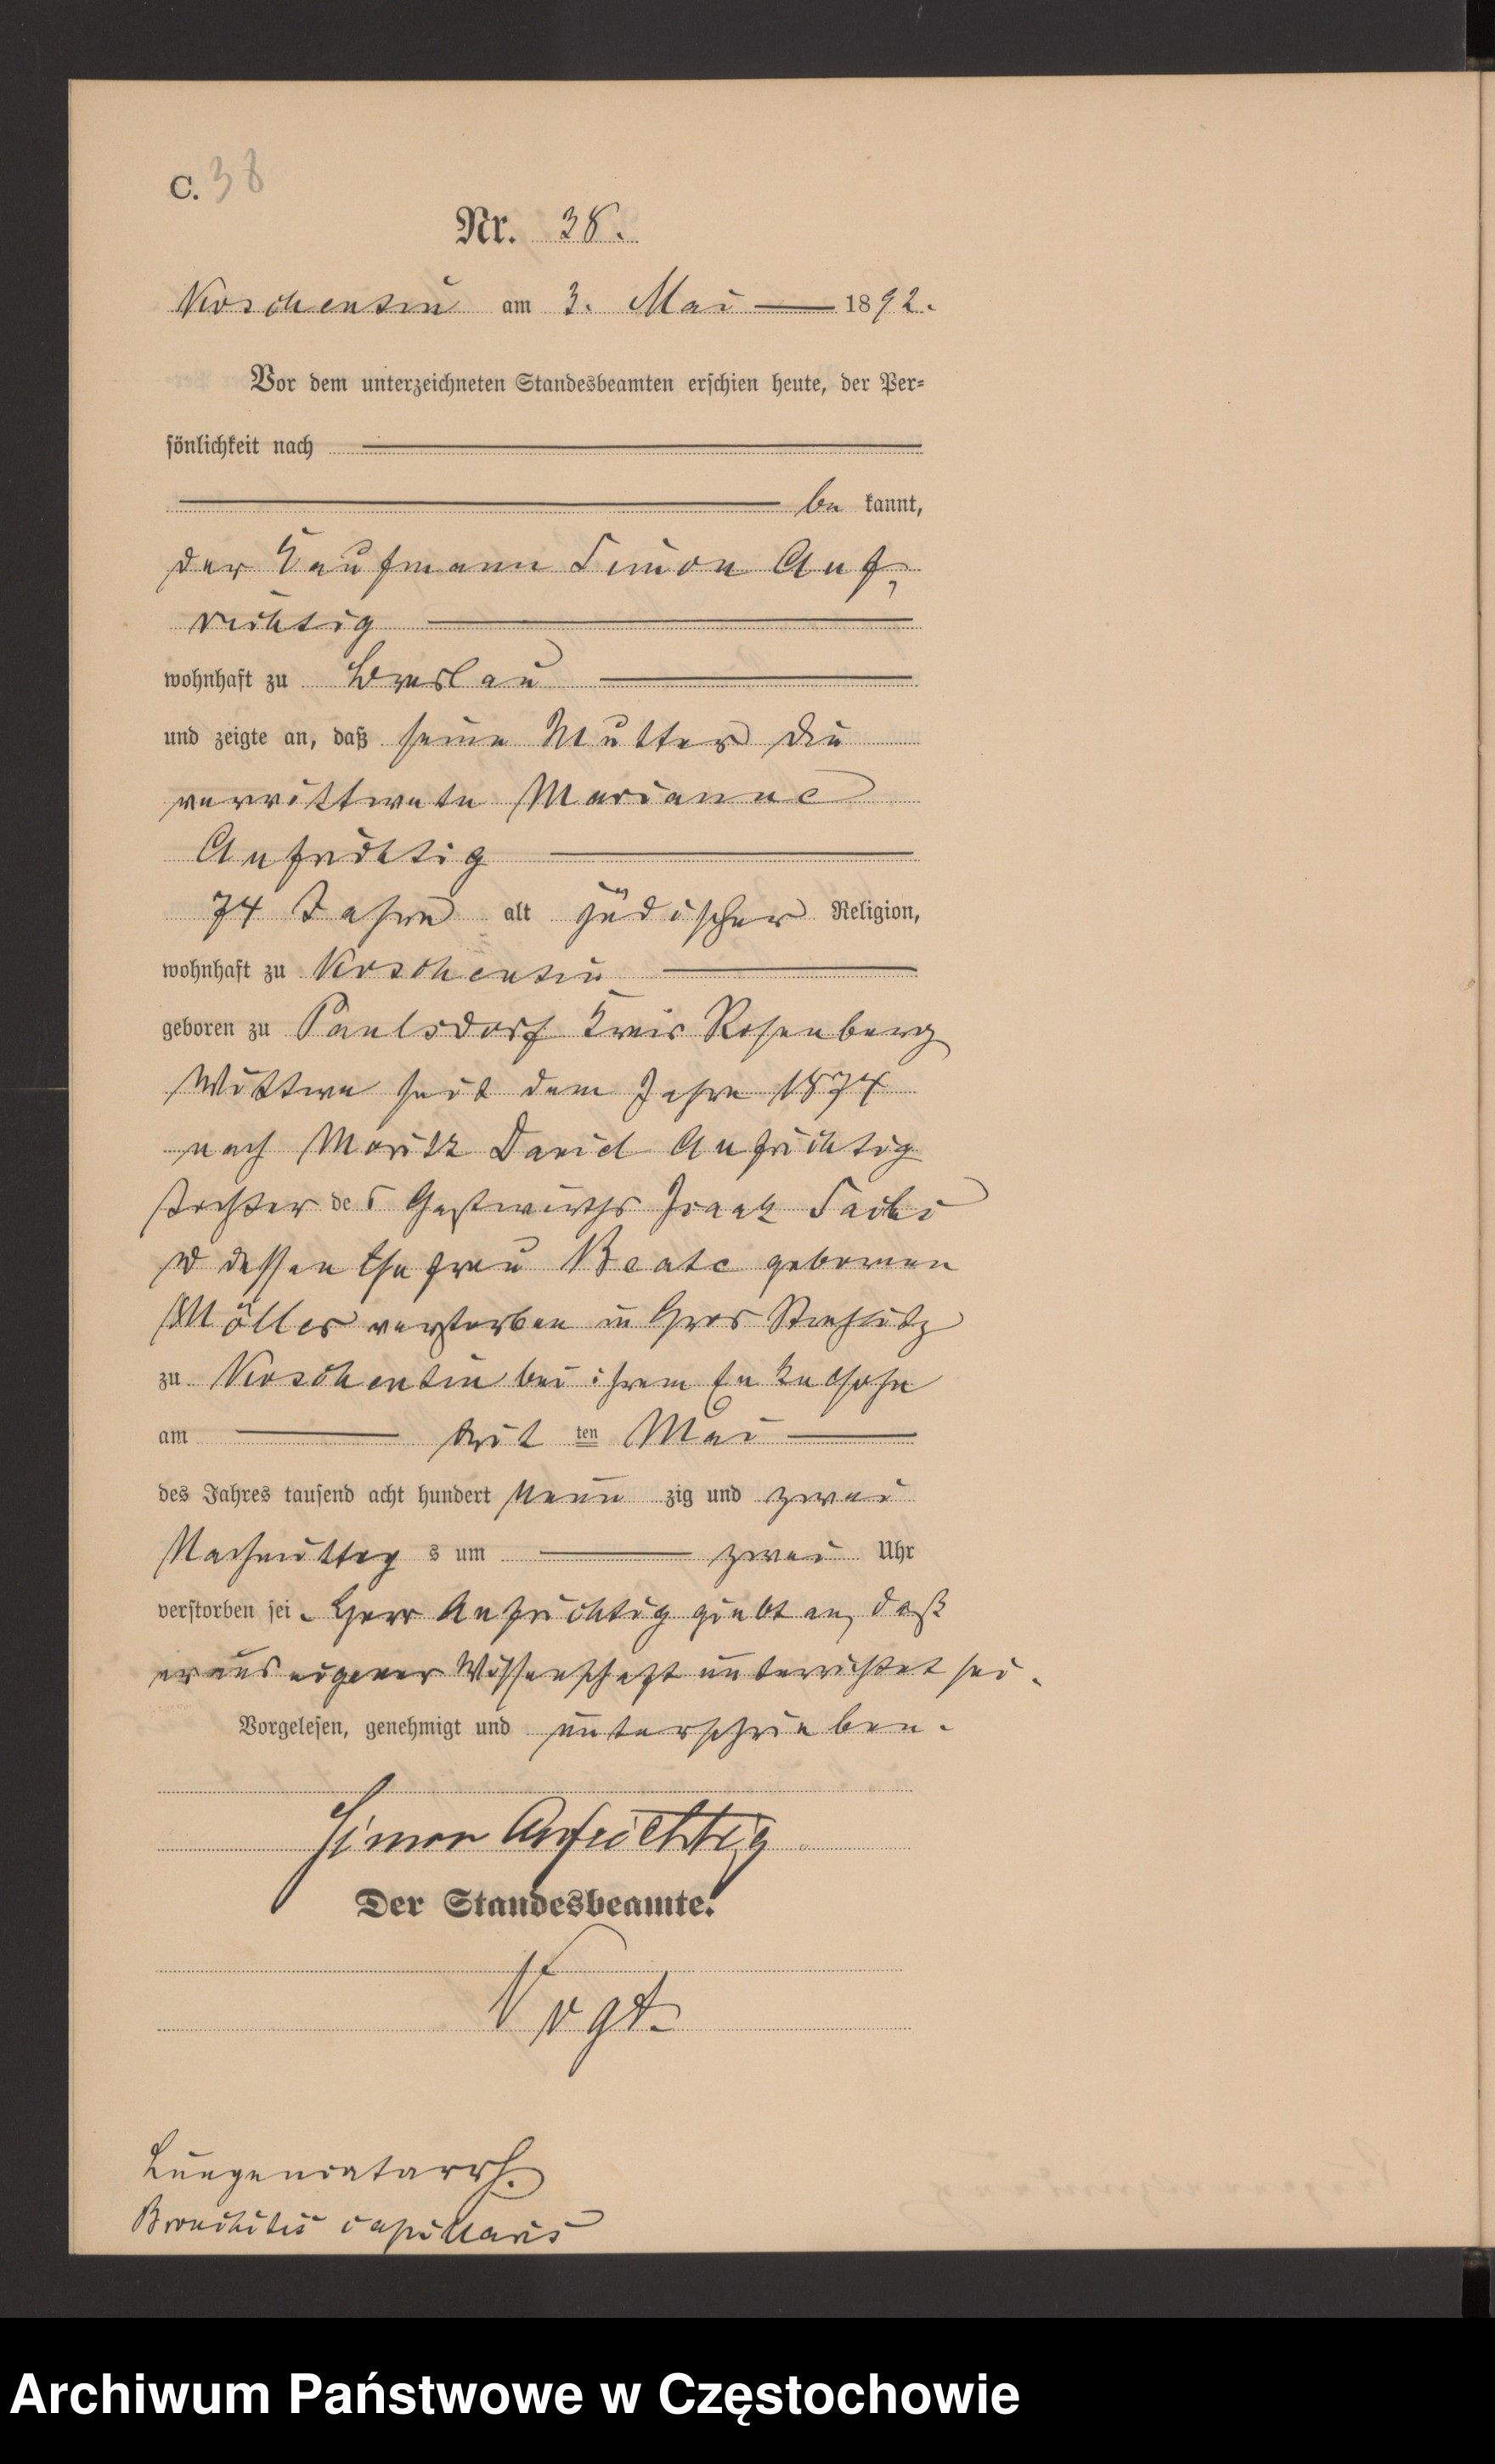 C. 38
Nr. 38.
Koschentin am 3. Mai 1892.
Vor dem unterzeichneten Standesbeamten erschien heute, der Per=
sönlichkeit nach
be kannt,
der Kaufmann Simon Auf,
richtig
wohnhaft zu Breslau
und zeigte an, daß seine Mutter die
verwittwete Marianne
Aufrichtig
74 Jahre alt jüdischer Religion,
wohnhaft zu Koschentin
geboren zu Paulsdorf Kreis Rosenberg
Wittwe seit dem Jahre 1874
nach Moritz David Aufrichtig
Tochter des Gastwirths Isaak
dessen Ehefrau Beate geborenen
Möller verstorben in Gros Strehlitz
zu Koschentin bei ihrem Enkelsohn
am dritten Mai
des Jahres tausend acht hundert Neun zig und zwei
Nachmittag s um zwei Uhr
verstorben sei. Herr Aufrichtig giebt an, daß
er aus eigener Wissenschaft unterrichtet sei.
Vorgelesen, genehmigt und unterschrieben.
Simon Aufrichtig
Der Standesbeamte.
Vogt.
Lungencatarrh.
Bronchitis capillaris
Archiwum Państwowe w Częstochowie